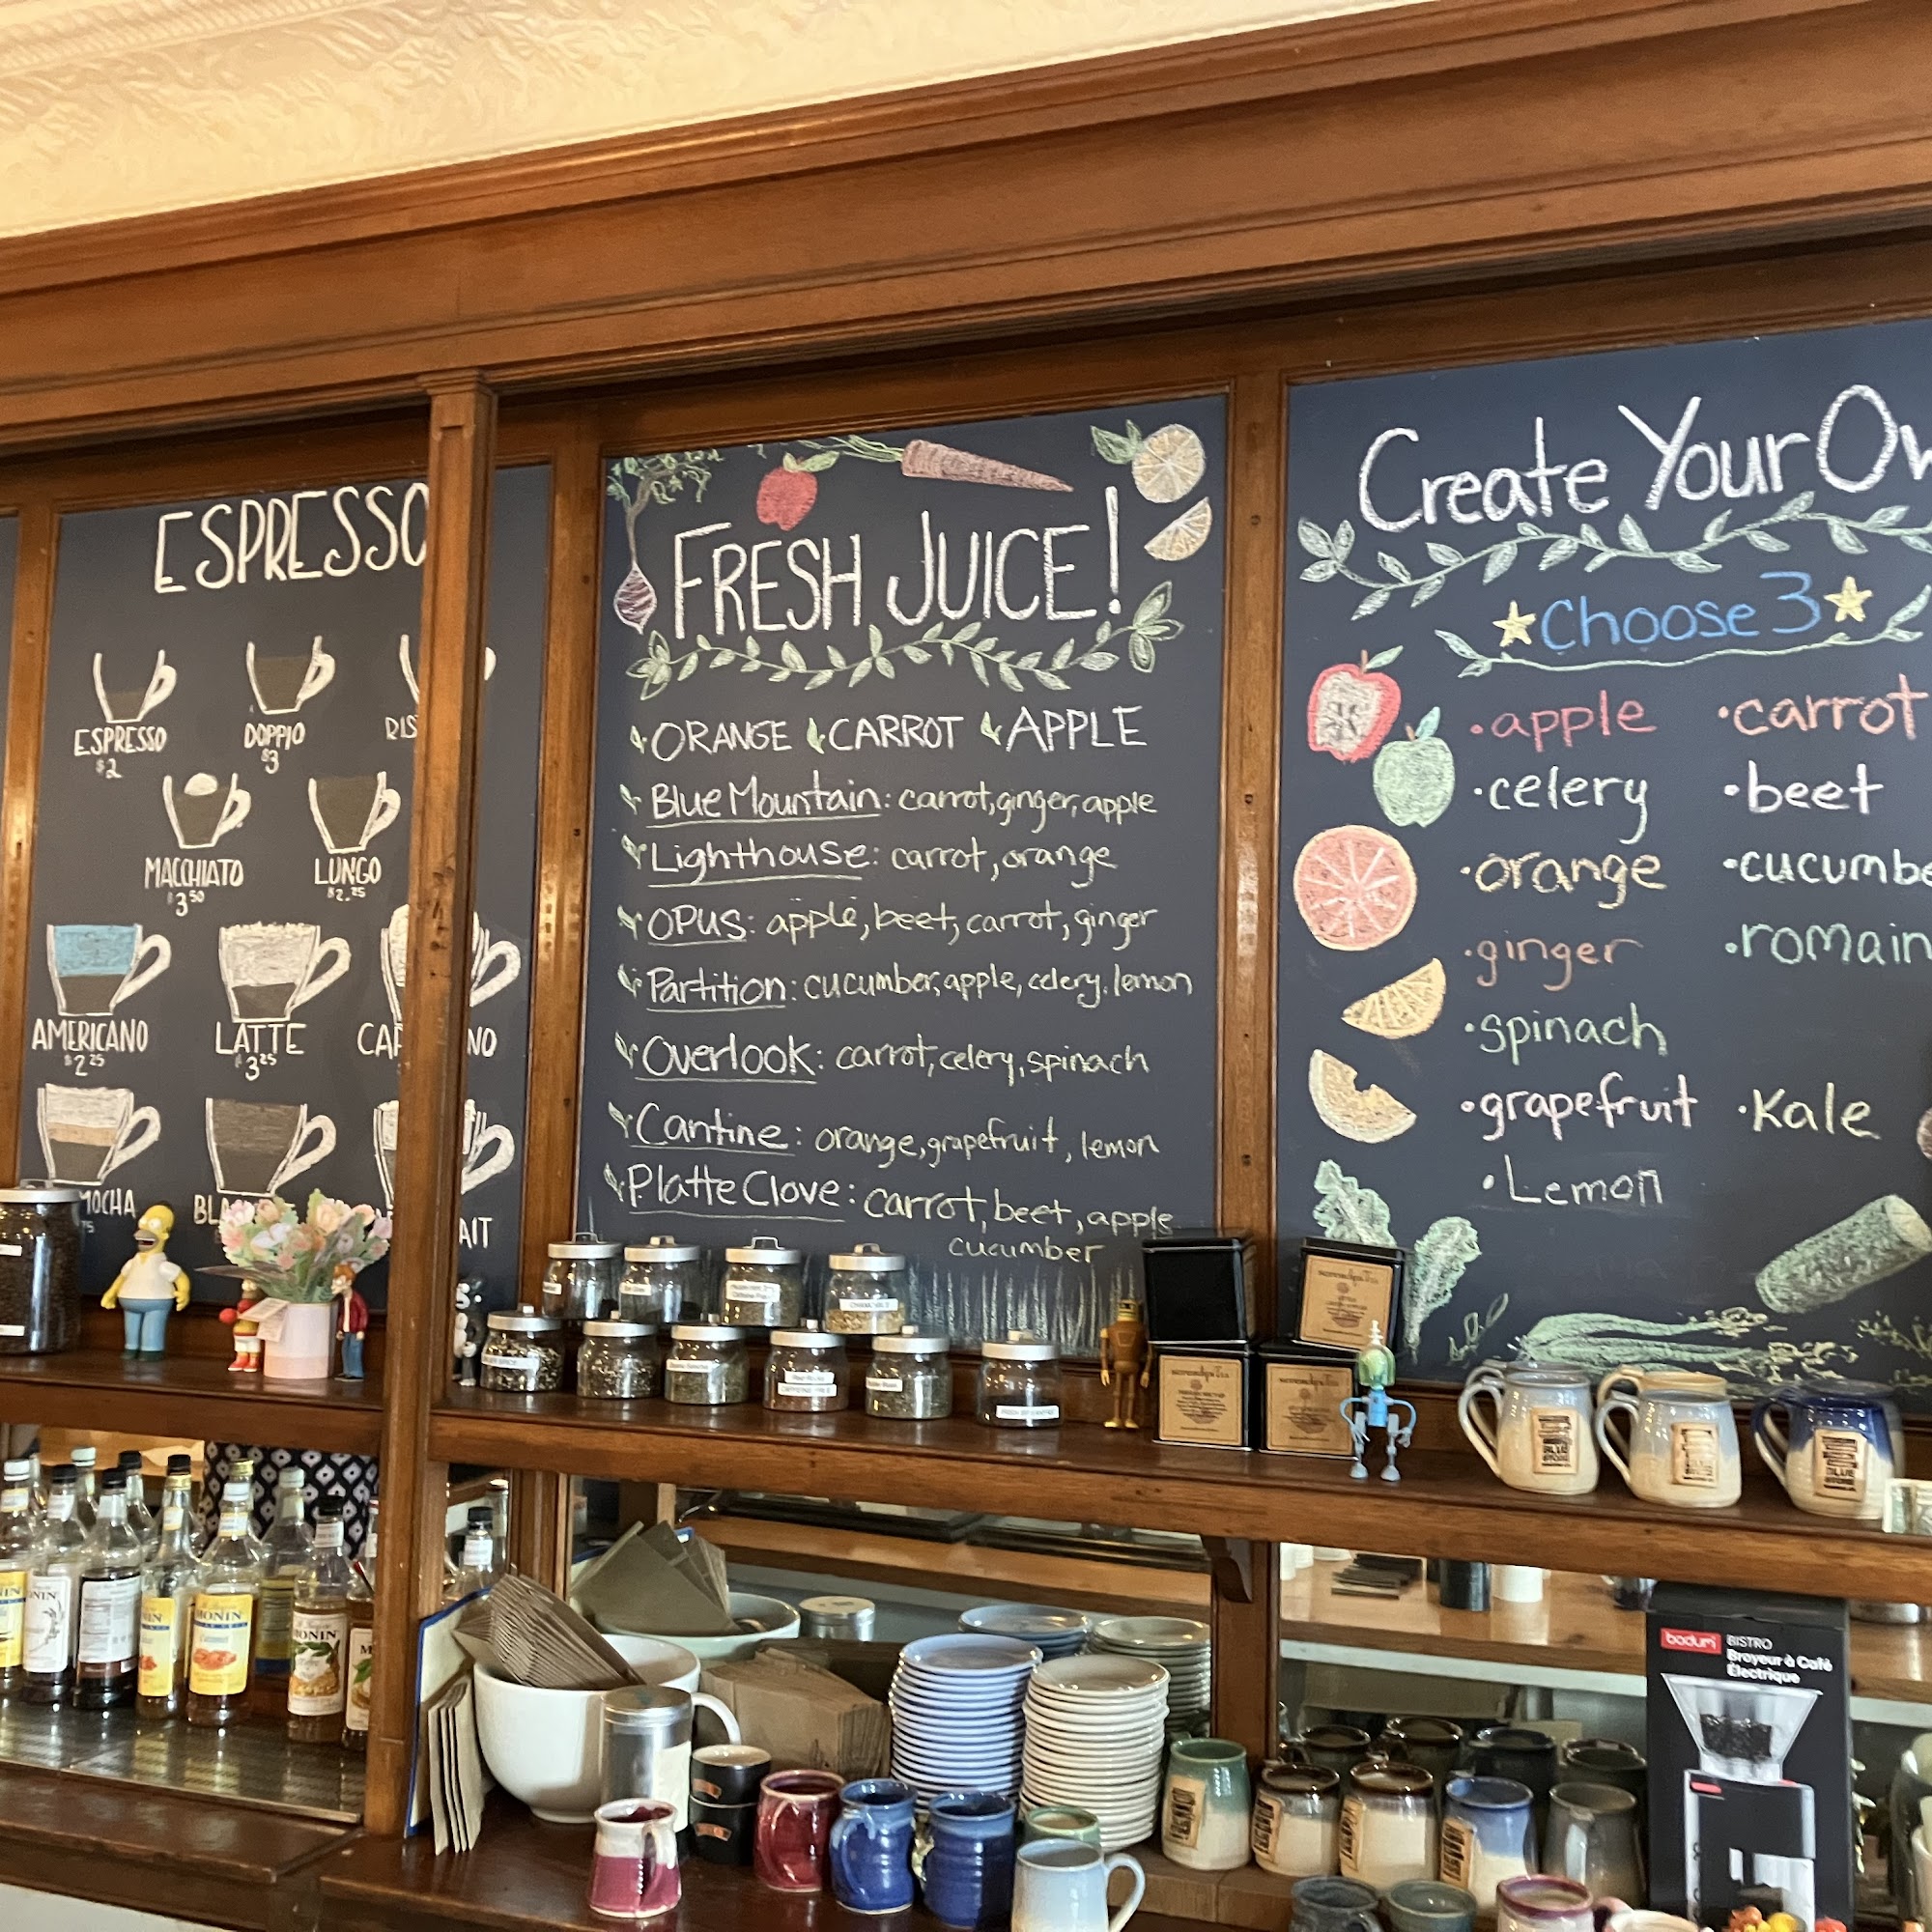 ESPRESSO
ESPRESSO
$2
DOPPIO
$3
MACCHIATO
$3 50
LUNGO
$2.25
AMERICANO
$2 25
LATTE
$3 25
MOCHA
FRESH JUICE!
ORANGE CARROT APPLE
Blue Mountain: carrot, ginger, apple
Lighthouse: carrot, orange
OPUS: apple, beet, carrot, ginger
Partition: cucumber, apple, celery, lemon
Overlook: carrot, celery, spinach
Cantine: orange, grapefruit, lemon
Platte Clove: carrot, beet, apple
cucumber
Create Your
Choose 3
•apple •carrot
•celery •beet
•orange
•ginger
•spinach
•grapefruit •Kale
•Lemon
MONIN
MONIN
bodum BISTRO
Broyeur à Café
Électrique